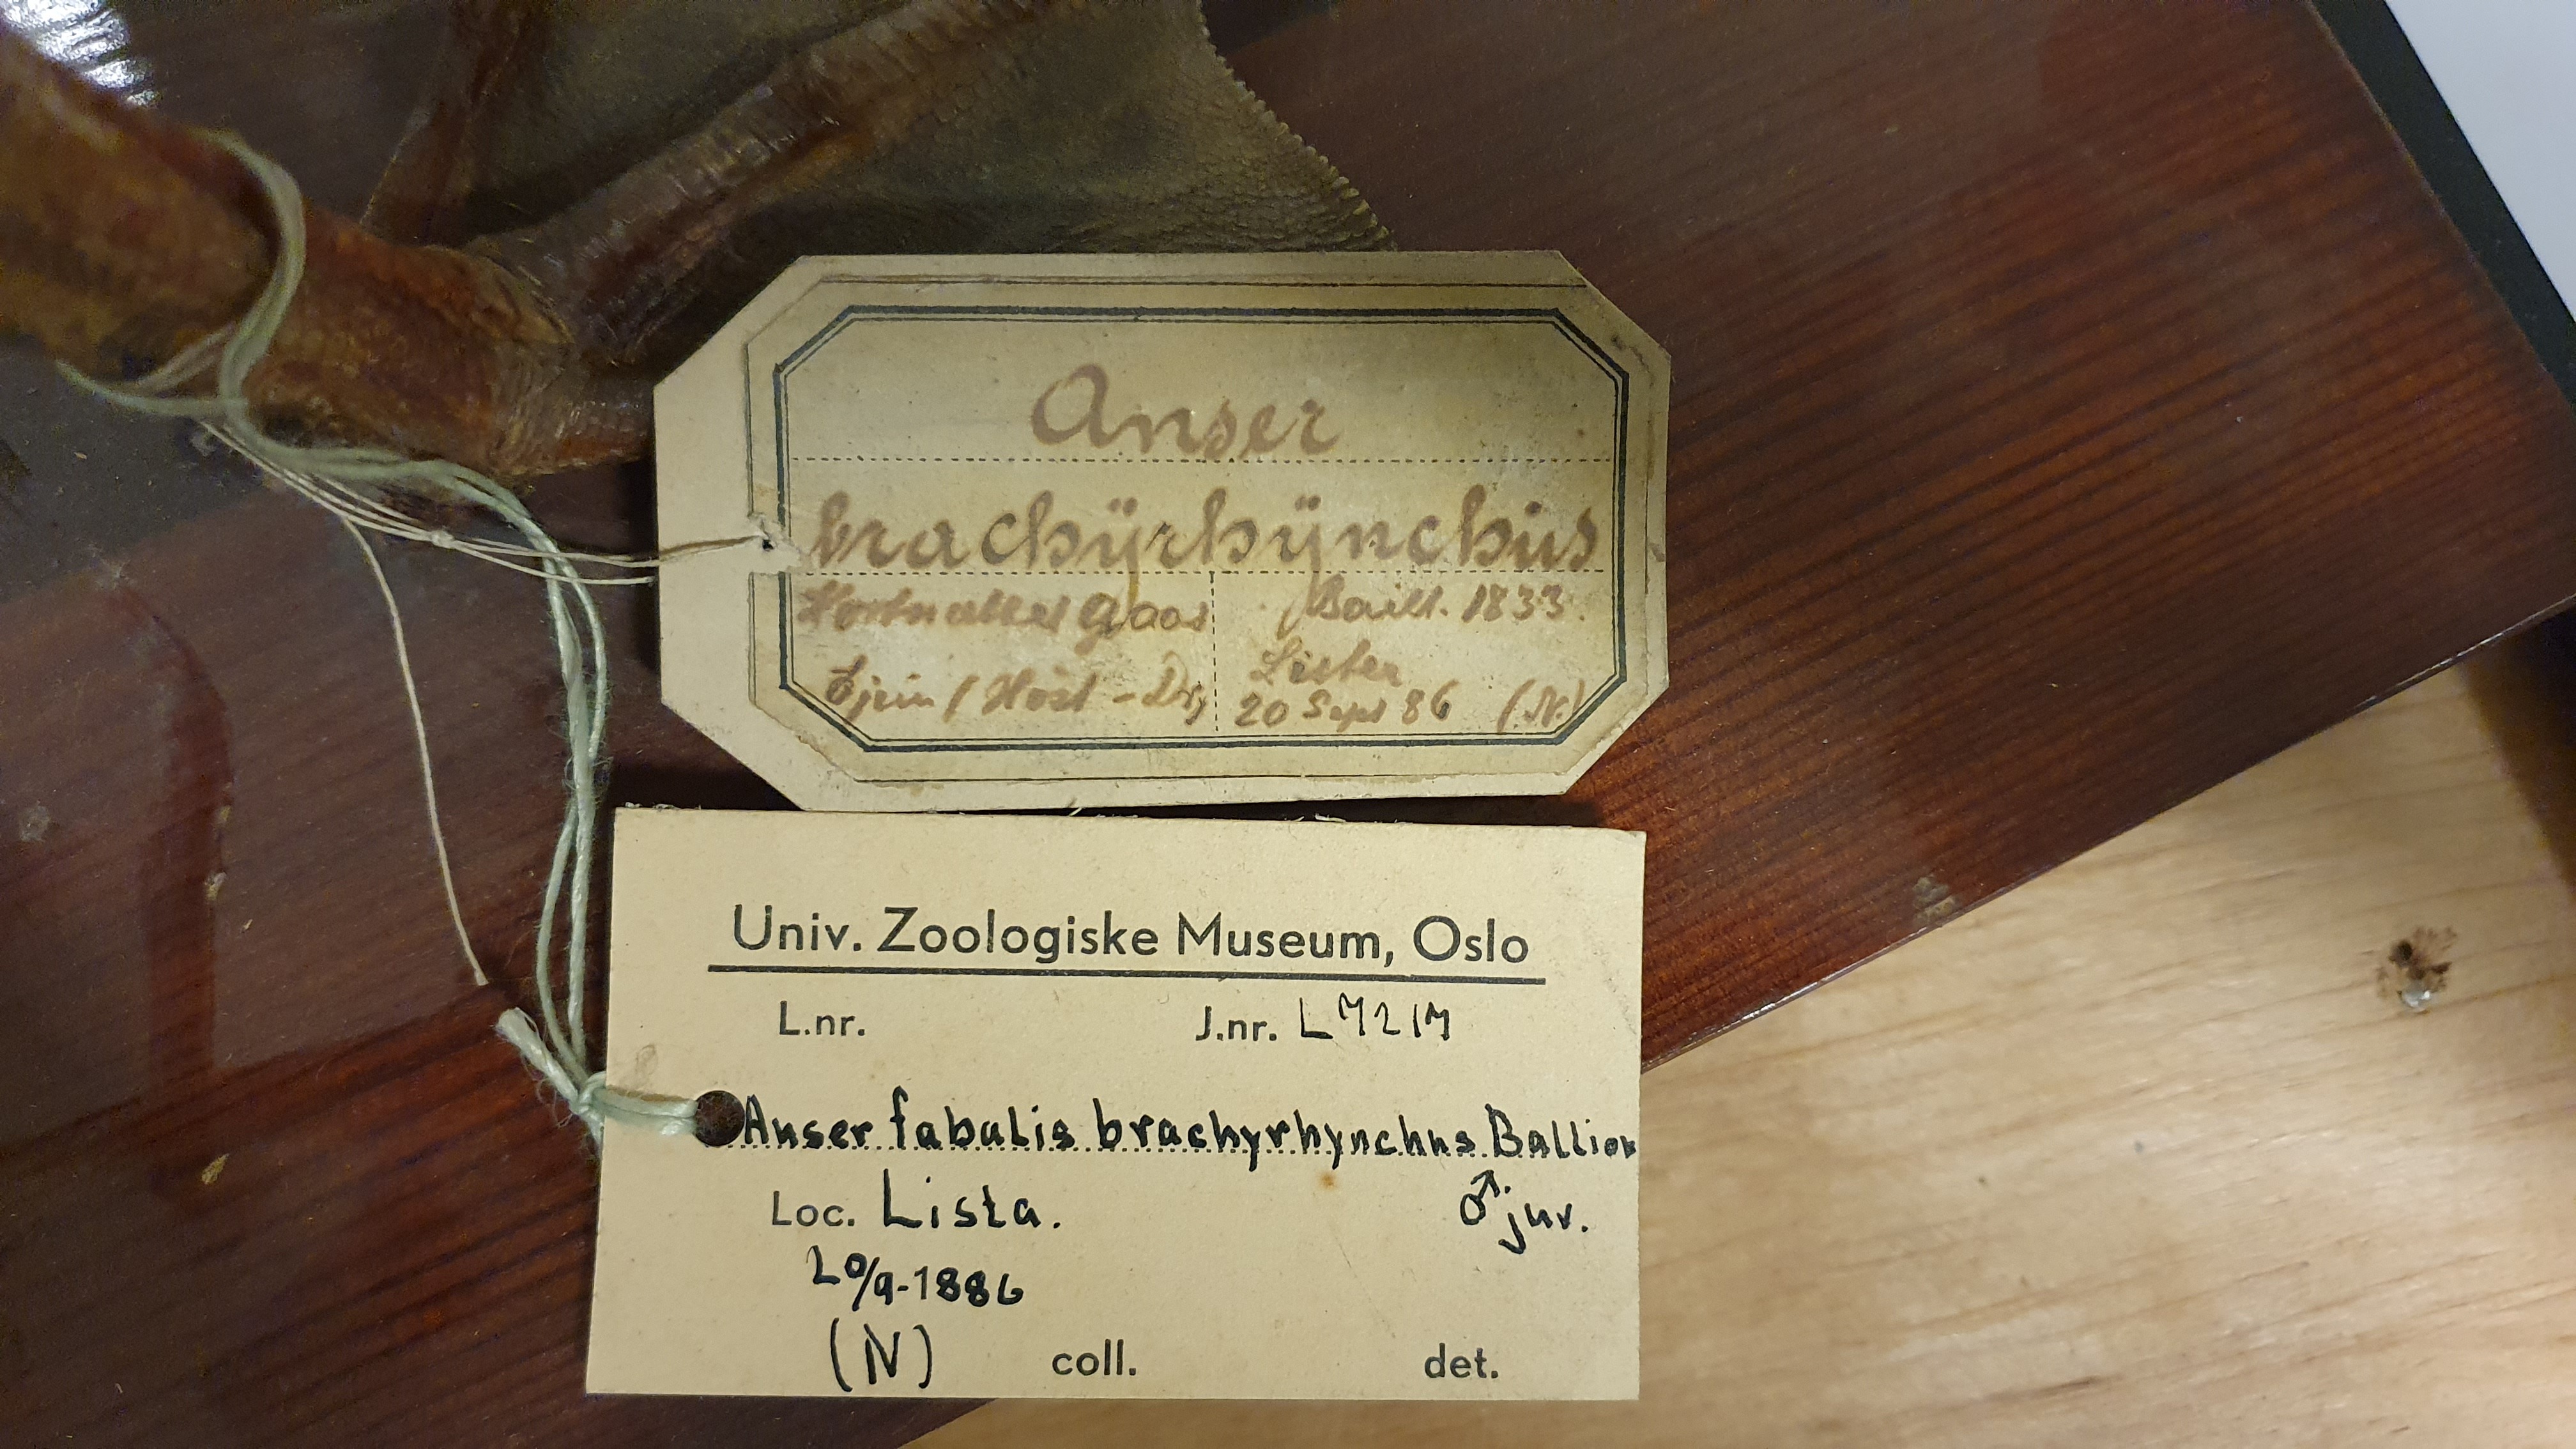 Anser
brachÿrhÿnchus
Kortnæbbet Gaas
Baill. 1833.
Ejein / Höst - Dr,
Lista
20 Sept 86 (N.)
Univ. Zoologiske Museum, Oslo
L.nr. J.nr. L7217
Anser fabalis brachyrhynchus Ballion
Loc. Lista. ♂ juv.
20/9-1886
(N) coll. det.